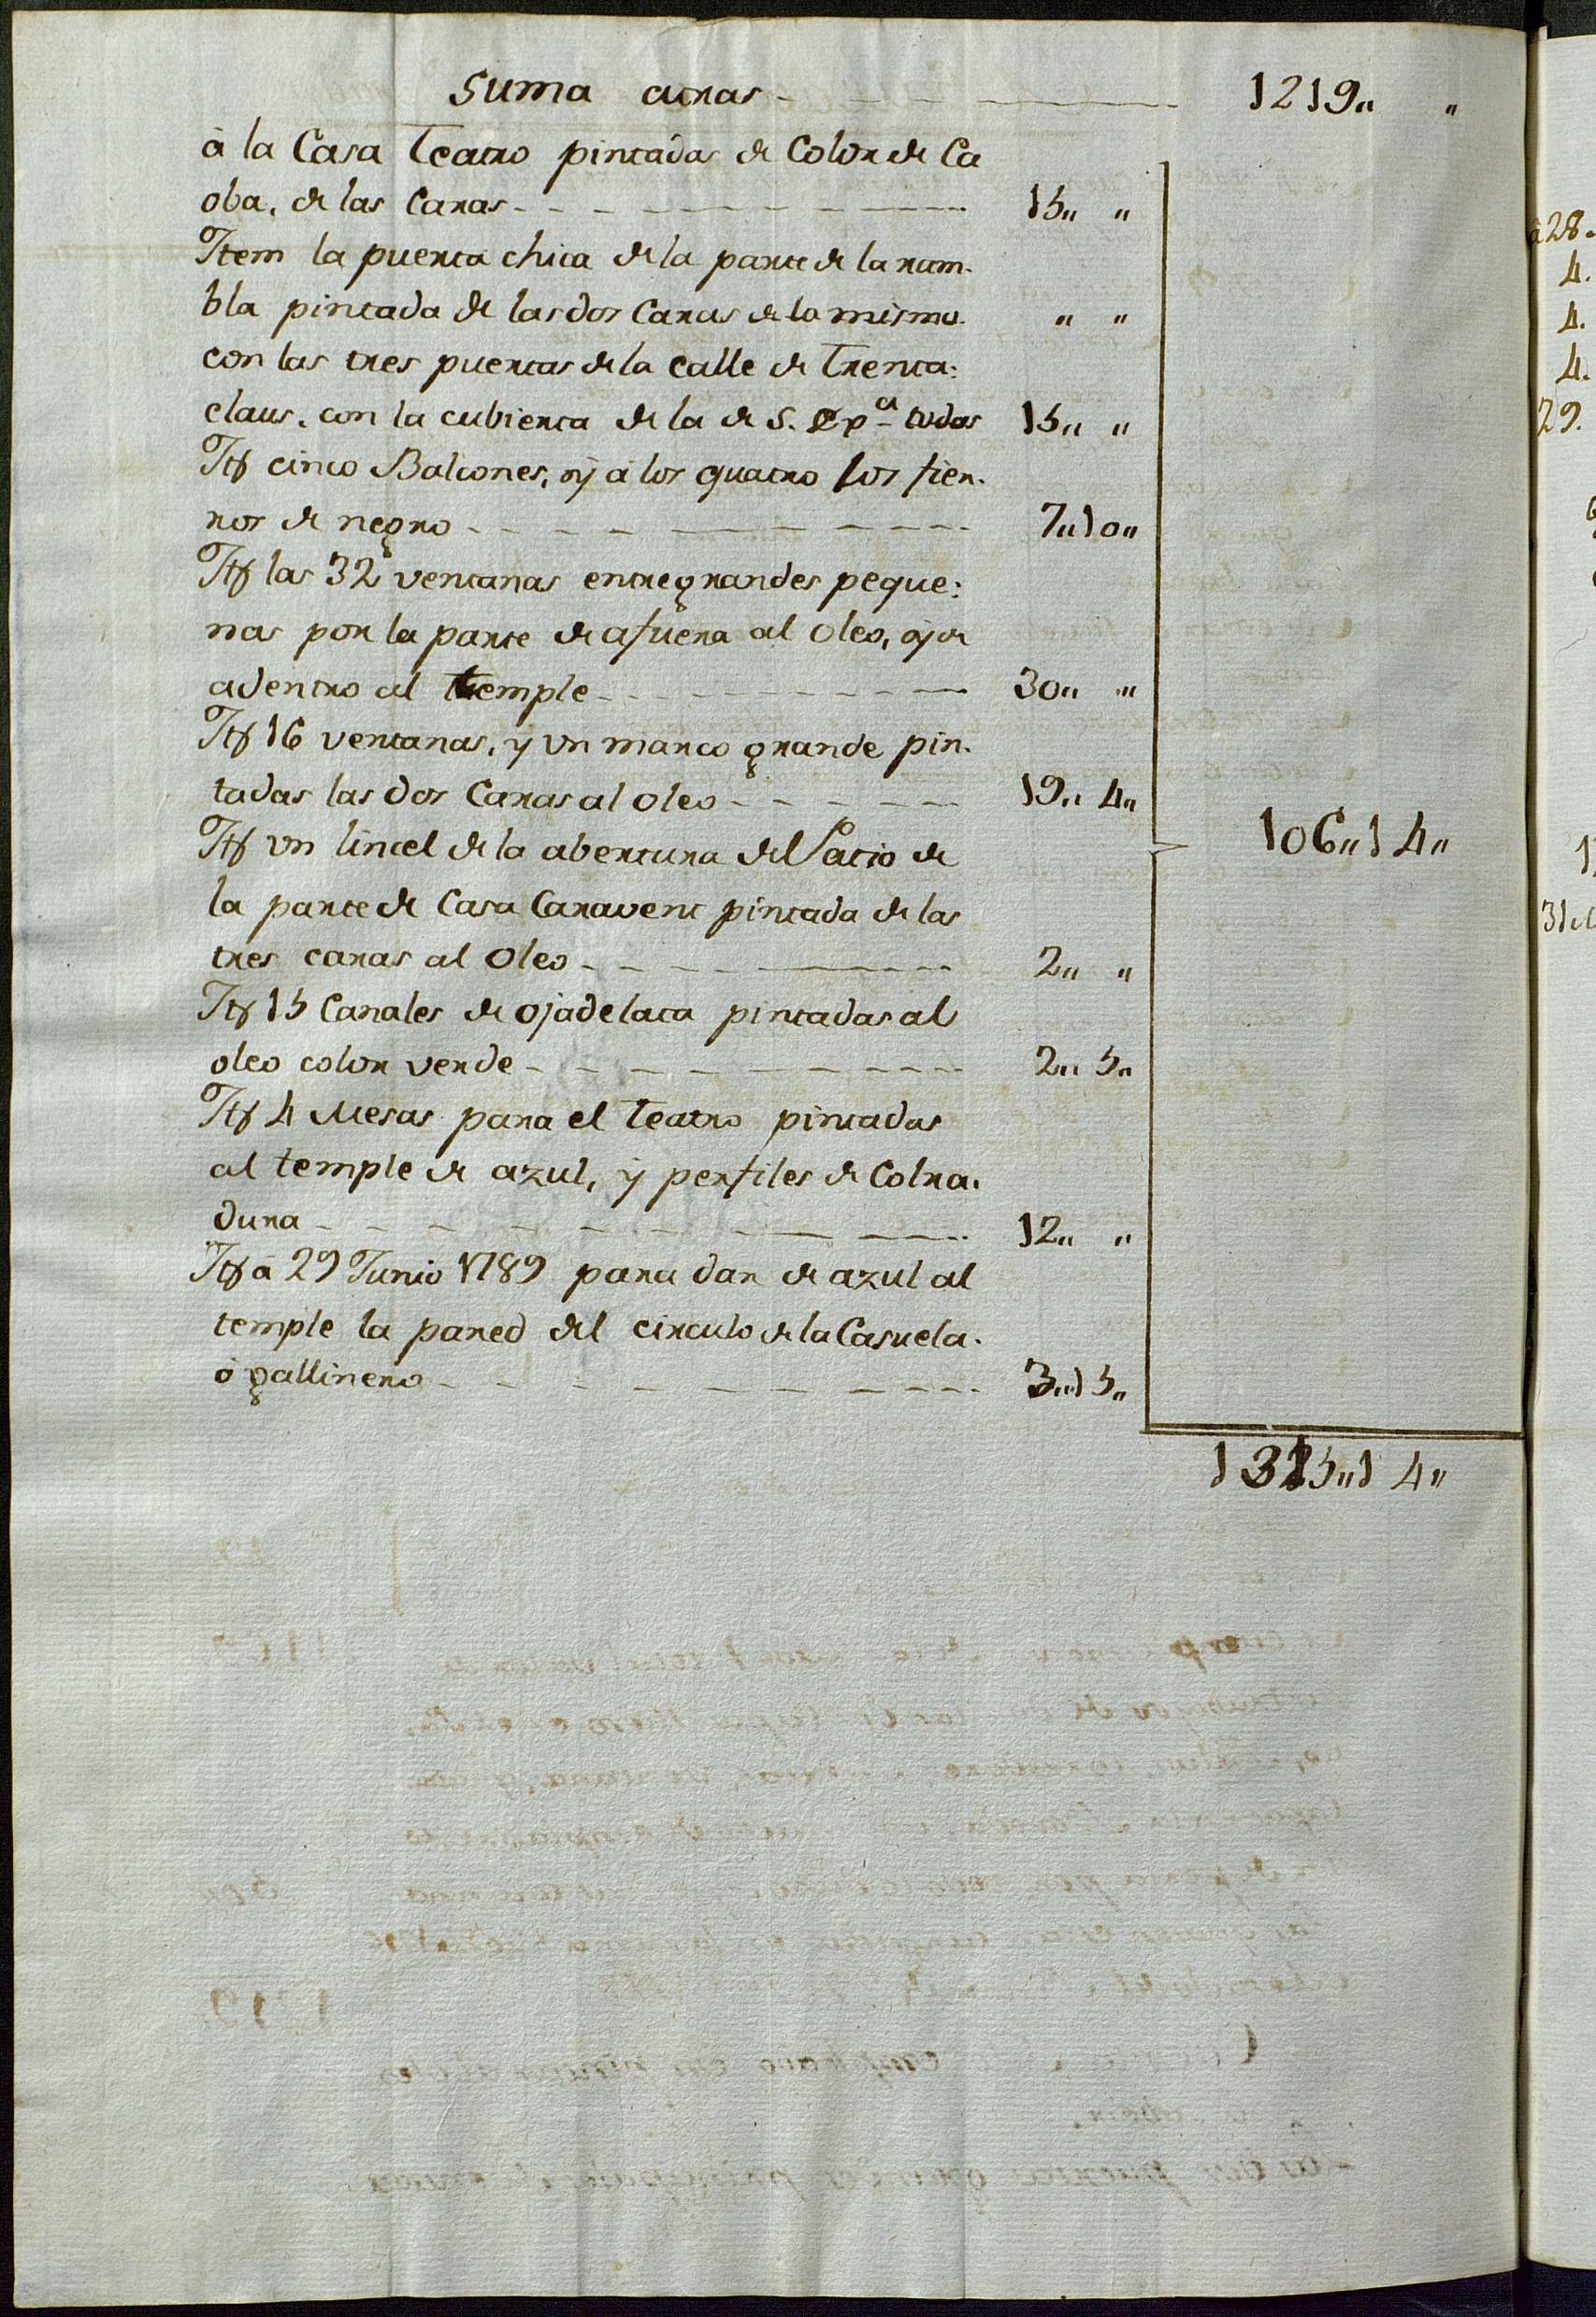 Suma atras - - - - - 1219,, ,,
à la Casa Teatro pintadas de Color de Ca
oba, de las Caras - - - - - 15,, ,,
Item la puerta chica de la parte de la ram-
bla pintada de las dos Caras de lo mismo. ,, ,,
con las tres puertas de la calle de Trenta:
claus, con la cubierta de la de S. Exp.ª todas 15,, ,,
Itt cinco Balcones, y á los quatro los fier-
ros de negro - - - - - 7,,10,,
Itt las 32 ventanas entre grandes peque:
nas por la parte de afuera al Oleo, y de
adentro al temple - - - - - 30,, ,,
Itt 16 ventanas, y un marco grande pin-
tadas las dos Caras al oleo - - - - - 19,, 4,,
Itt un lintel de la abertura del Patio de
la parte de Casa Caravent pintada de las
tres caras al Oleo - - - - - 2,, ,,
Itt 15 Canales de ojadelata pintadas al
oleo color verde - - - - - 2,, 5,,
Itt 4 Mesas para el Teatro pintadas
al temple de azul, y perfiles de Colra-
dura - - - - - 12,, ,,
Itt a 29 Junio 1789 para dar de azul al
temple la pared del circulo de la Casuela.
ò gallinero - - - - - 3,,15,,
106,,14,,
1325,,14,,
à 28.
4.
4.
4.
29.